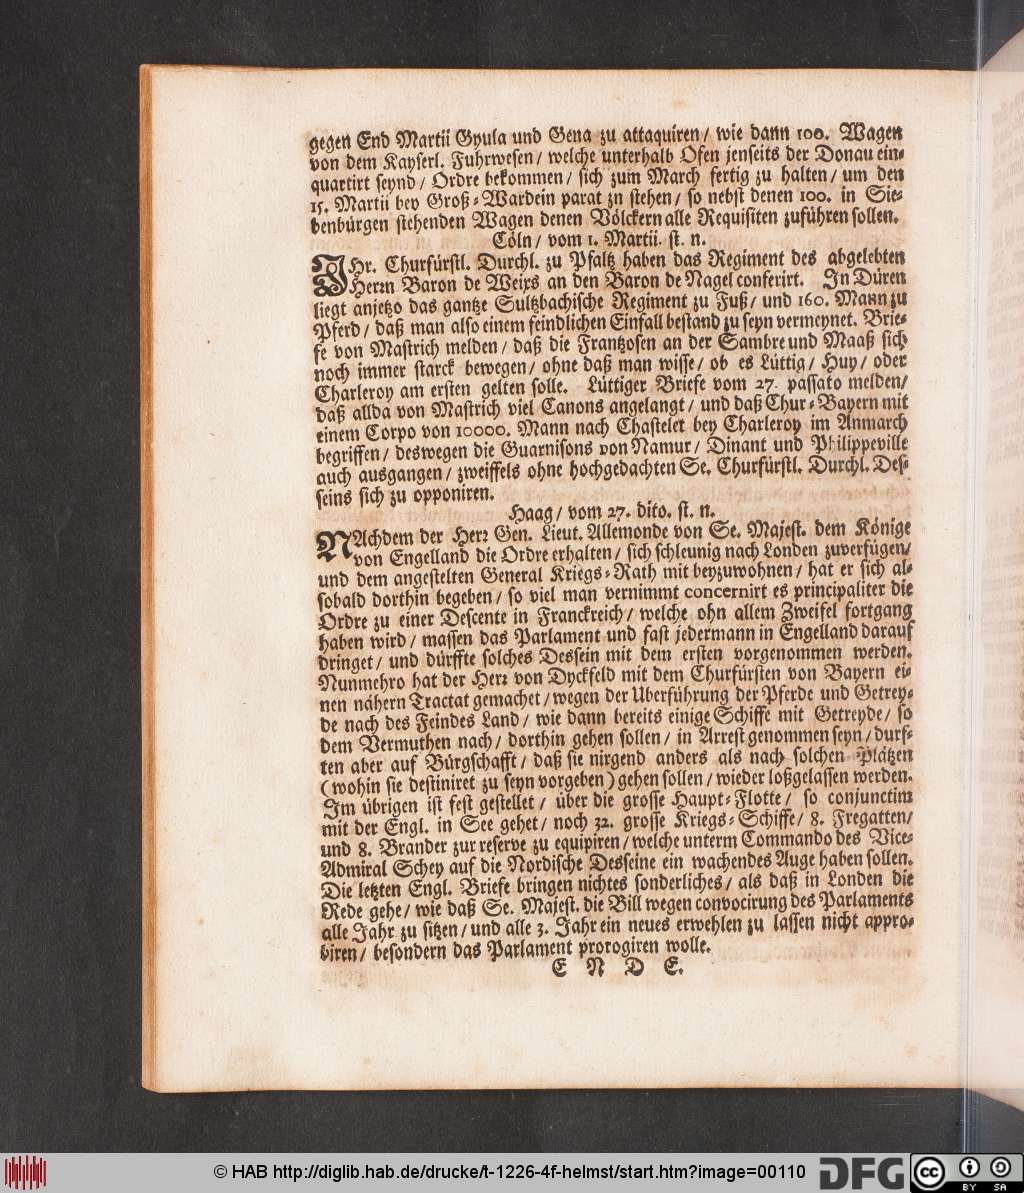 gegen End Martii Gyula und Gena zu attaquiren / wie dann 100. Wagen
von dem Kayserl. Fuhrwesen / welche unterhalb Ofen jenseits der Donau ein-
quartirt seynd / Ordre bekommen / sich zum March fertig zu halten / um den
15. Martii bey Groß-Wardein parat zn stehen / so nebst denen 100. in Sie-
benbürgen stehenden Wagen denen Völckern alle Requisiten zuführen sollen.
Cöln / vom 1. Martii. st. n.
IHr. Churfürstl. Durchl. zu Pfaltz haben das Regiment des abgelebten
Herrn Baron de Weixs an den Baron de Nagel conferirt. In Düren
liegt anjetzo das gantze Sultzbachische Regiment zu Fuß / und 160. Mann zu
Pferd / daß man also einem feindlichen Einfall bestand zu seyn vermeynet. Brie-
fe von Mastrich melden / daß die Frantzosen an der Sambre und Maaß sich
noch immer starck bewegen / ohne daß man wisse / ob es Lüttig / Huy / oder
Charleroy am ersten gelten solle. Lüttiger Briefe vom 27. passato melden /
daß allda von Mastrich viel Canons angelangt / und daß Chur-Bayern mit
einem Corpo von 10000. Mann nach Chastelet bey Charleroy im Anmarch
begriffen / deswegen die Guarnisons von Namur / Dinant und Philippeville
auch ausgangen / zweiffels ohne hochgedachten Se. Churfürstl. Durchl. Des-
seins sich zu opponiren.
Haag / vom 27. dito. st. n.
NAchdem der Herr Gen. Lieut. Allemonde von Se. Majest. dem Könige
von Engelland die Ordre erhalten / sich schleunig nach Londen zuverfügen /
und dem angestelten General Kriegs-Rath mit beyzuwohnen / hat er sich al-
sobald dorthin begeben / so viel man vernimmt concernirt es principaliter die
Ordre zu einer Descente in Franckreich / welche ohn allem Zweifel fortgang
haben wird / massen das Parlament und fast jedermann in Engelland darauf
dringet / und dürffte solches Dessein mit dem ersten vorgenommen werden.
Nunmehro hat der Herr von Dyckfeld mit dem Churfürsten von Bayern ei-
nen nähern Tractat gemachet / wegen der Uberführung der Pferde und Getrey-
de nach des Feindes Land / wie dann bereits einige Schiffe mit Getreyde / so
dem Vermuthen nach / dorthin gehen sollen / in Arrest genommen seyn / durf-
ten aber auf Bürgschafft / daß sie nirgend anders als nach solchen Plätzen
(wohin sie destiniret zu seyn vorgeben) gehen sollen / wieder loßgelassen werden.
Im übrigen ist fest gestellet / über die grosse Haupt-Flotte / so conjunctim
mit der Engl. in See gehet / noch 32. grosse Kriegs-Schiffe / 8. Fregatten /
und 8. Brander zur reserve zu equipiren / welche unterm Commando des Vice-
Admiral Schey auf die Nordische Desseine ein wachendes Auge haben sollen.
Die letzten Engl. Briefe bringen nichtes sonderliches / als daß in Londen die
Rede gehe / wie daß Se. Majest. die Bill wegen convocirung des Parlaments
alle Jahr zu sitzen / und alle 3. Jahr ein neues erwehlen zu lassen nicht appro-
biren / besondern das Parlament prorogiren wolle.
E N D E.
© HAB http://diglib.hab.de/drucke/t-1226-4f-helmst/start.htm?image=00110
DFG
cc BY SA